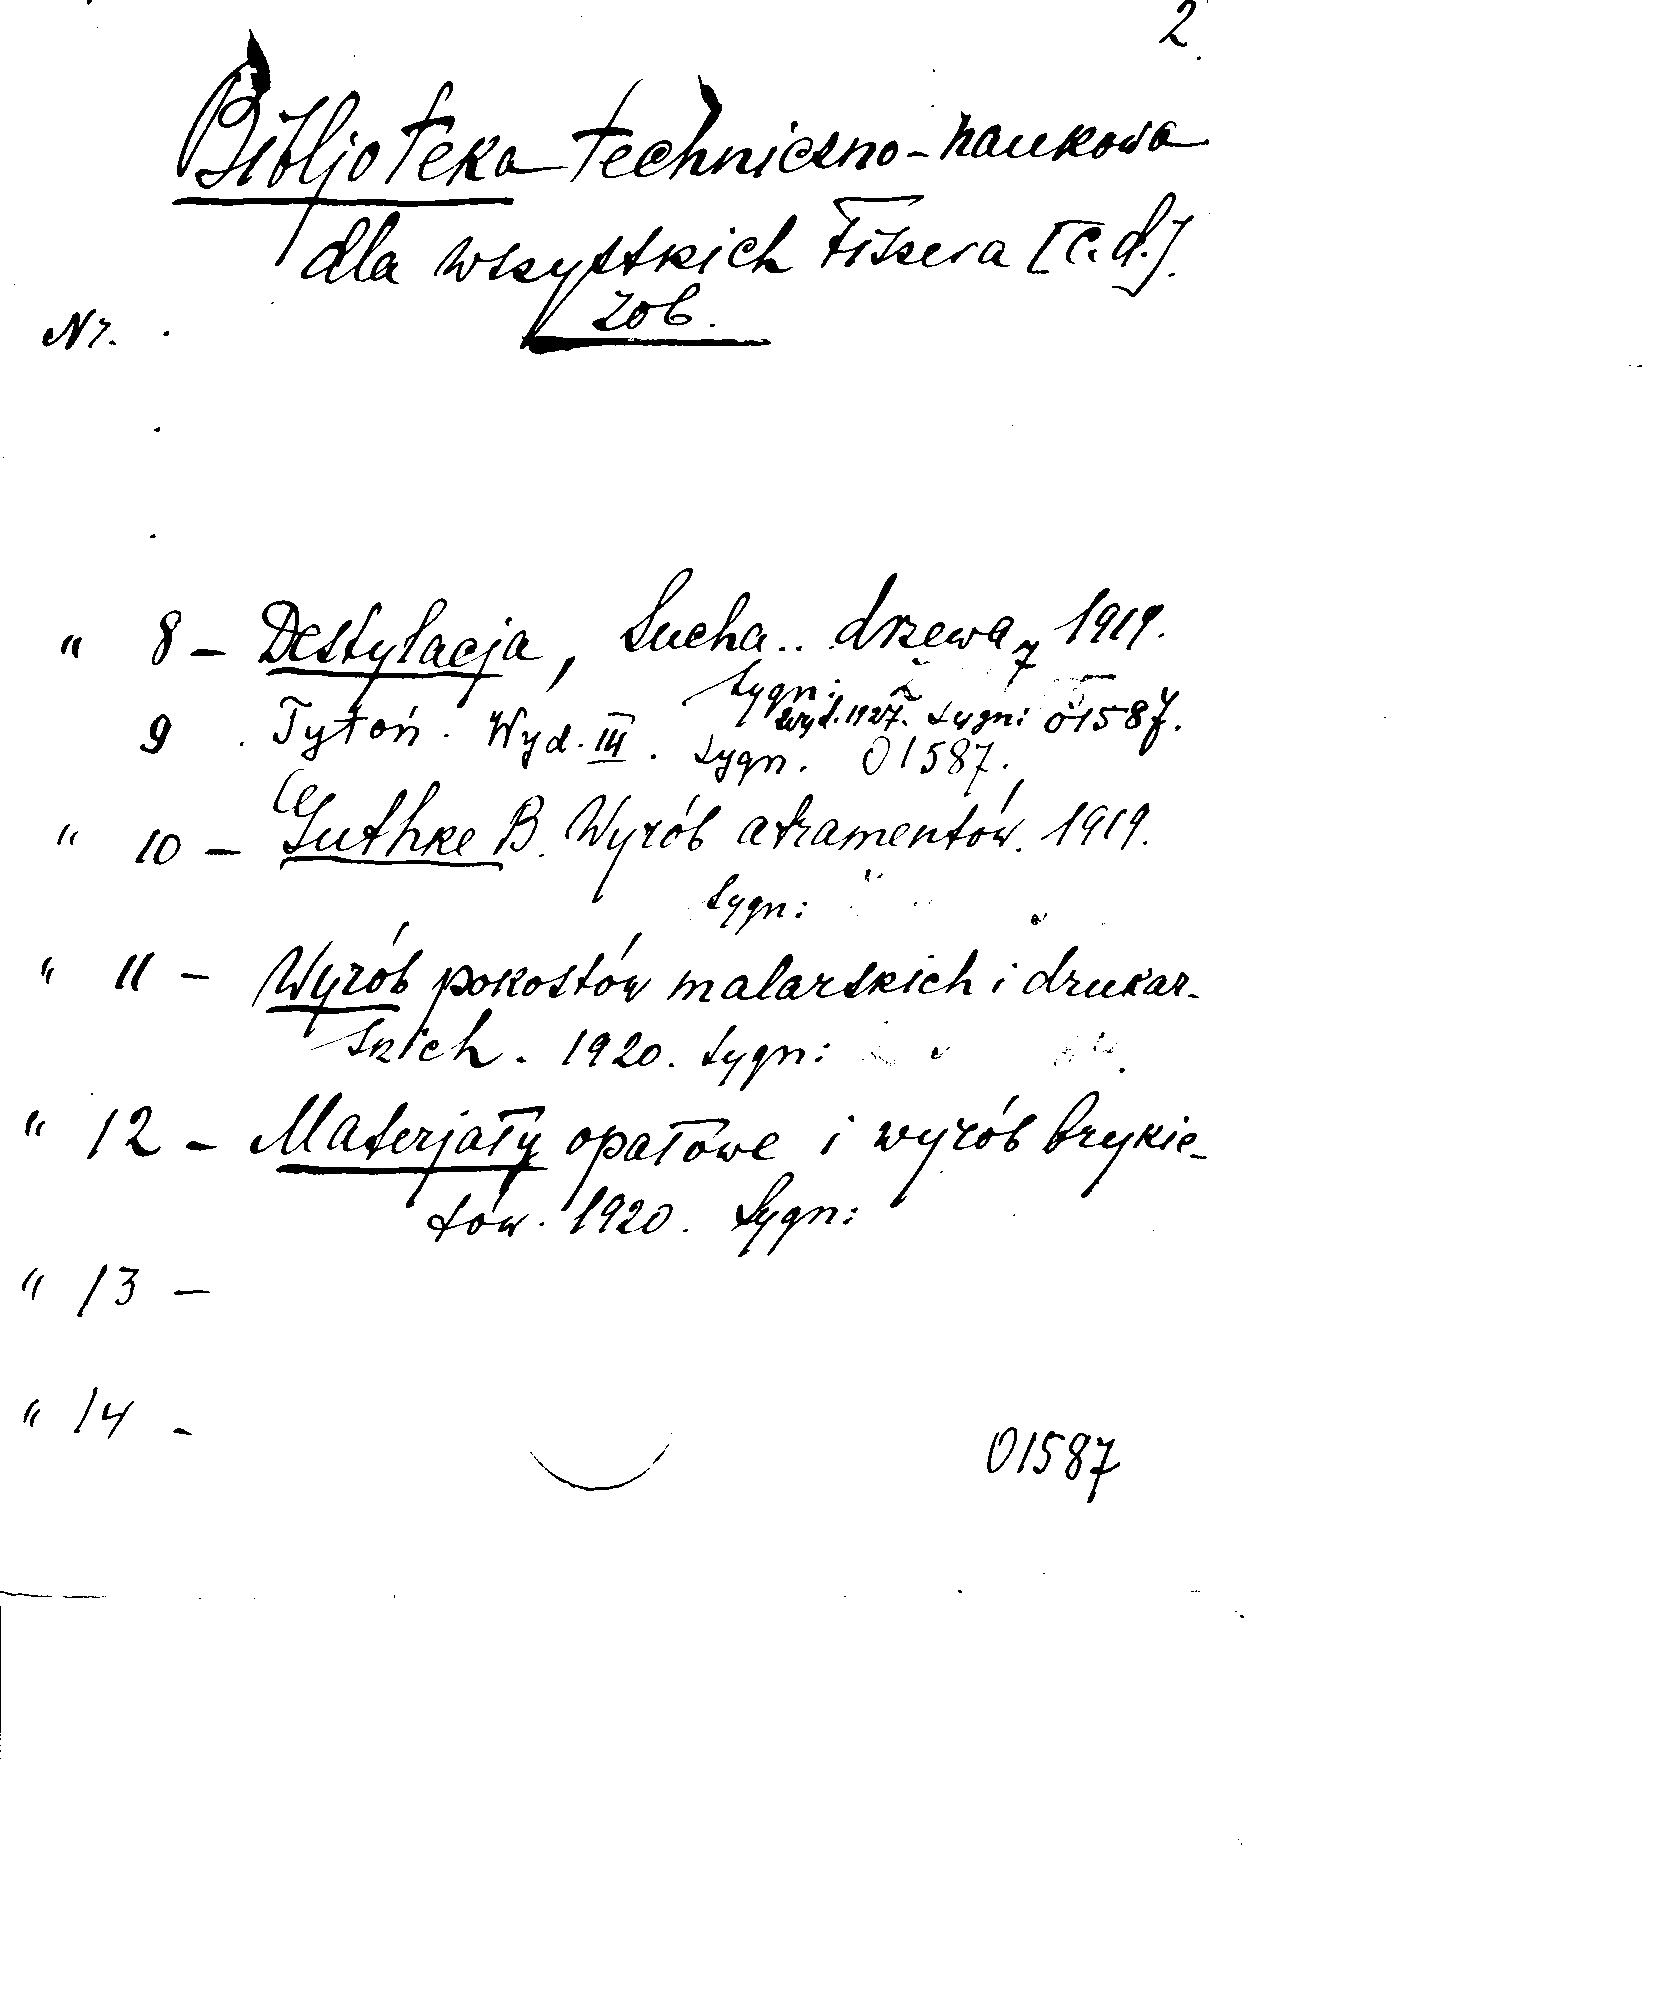 2.
Bibljoteka techniczno-naukowa
dla wszystkich Fiszera [c.d.].
zob.
Nr.
" 8 - Destylacja, Sucha .. drzewa, 1919.
Sygn:
Wyd. 1927. sygn: 01587.
9 . Tytoń. Wyd. III. sygn. 01587.
" 10 - Guthke B. Wyrób atramentów. 1919.
Sygn:
" 11 - Wyrób pokostów malarskich i drukar-
skich. 1920. sygn:
" 12 - Materjały opałowe i wyrób brykie-
tów. 1920. Sygn:
" 13 -
" 14 -
01587